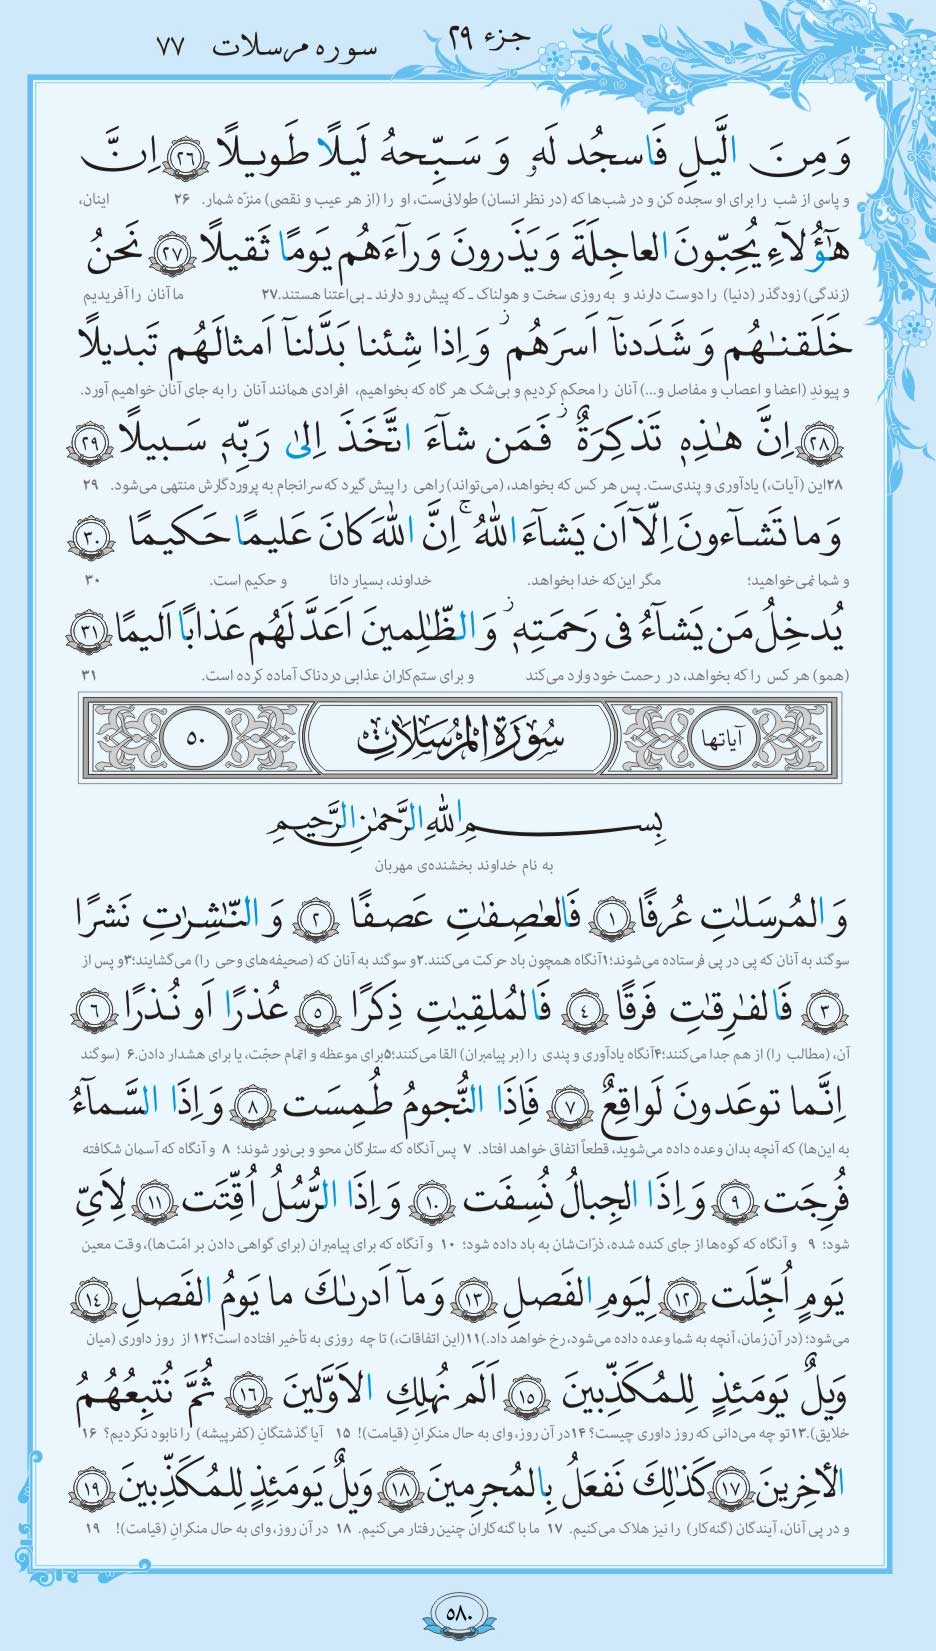 جزء ۲۹
سوره مرسلات ۷۷
وَ مِنَ الَّیلِ فَاسجُد لَهٗ وَ سَبِّحهُ لَیلًا طَویلًا ﴿۲۶﴾ اِنَّ
و پاسی از شب را برای او سجده کن و در شب‌ها که (در نظر انسان) طولانی‌ست، او را (از هر عیب و نقصی) منزّه شمار. ۲۶ اینان،
هٰٓؤُلآءِ یُحِبّونَ العاجِلَةَ وَ یَذَرونَ وَرآءَهُم یَومًا ثَقیلًا ﴿۲۷﴾ نَحنُ
(زندگی) زودگذر (دنیا) را دوست دارند و به روزی سخت و هولناک ـ که پیش رو دارند ـ بی‌اعتنا هستند.۲۷ ما آنان را آفریدیم
خَلَقنٰهُم وَ شَدَدنآ اَسرَهُم ۖ وَ اِذا شِئنا بَدَّلنآ اَمثالَهُم تَبدیلًا
و پیوندِ (اعضا و اعصاب و مفاصل و...) آنان را محکم کردیم و بی‌شک هر گاه که بخواهیم، افرادی همانند آنان را به جای آنان خواهیم آورد.
﴿۲۸﴾ اِنَّ هٰذِهٖ تَذکِرَةٌ ۖ فَمَن شآءَ اتَّخَذَ اِلیٰ رَبِّهٖ سَبیلًا ﴿۲۹﴾
۲۸این (آیات،) یادآوری و پندی‌ست. پس هر کس که بخواهد، (می‌تواند) راهی را پیش گیرد که سرانجام به پروردگارش منتهی می‌شود. ۲۹
وَ ما تَشآءونَ اِلّآ اَن یَشآءَ اللّٰهُ ۚ اِنَّ اللّٰهَ کانَ عَلیمًا حَکیمًا ﴿۳۰﴾
و شما نمی‌خواهید؛ مگر این‌که خدا بخواهد. خداوند، بسیار دانا و حکیم است. ۳۰
یُدخِلُ مَن یَشآءُ فی رَحمَتِهٖ ۚ وَ الظّٰلِمینَ اَعَدَّ لَهُم عَذابًا اَلیمًا ﴿۳۱﴾
(همو) هر کس را که بخواهد، در رحمت خود وارد می‌کند و برای ستم‌کاران عذابی دردناک آماده کرده است. ۳۱
آیاتها سُورَةُ المُرسَلات ۵۰
بِسمِ اللّٰهِ الرَّحمٰنِ الرَّحیمِ
به نام خداوند بخشنده‌ی مهربان
وَ المُرسَلٰتِ عُرفًا ﴿۱﴾ فَالعٰصِفٰتِ عَصفًا ﴿۲﴾ وَ النّٰشِرٰتِ نَشرًا
سوگند به آنان که پی در پی فرستاده می‌شوند؛۱آنگاه همچون باد حرکت می‌کنند.۲و سوگند به آنان که (صحیفه‌های وحی را) می‌گشایند؛۳و پس از
﴿۳﴾ فَالفٰرِقٰتِ فَرقًا ﴿۴﴾ فَالمُلقِیٰتِ ذِکرًا ﴿۵﴾ عُذرًا اَو نُذرًا ﴿۶﴾
آن، (مطالب را) از هم جدا می‌کنند؛۴آنگاه یادآوری و پندی را (بر پیامبران) القا می‌کنند؛۵برای موعظه و اتمام حجّت، یا برای هشدار دادن.۶ (سوگند
اِنَّما توعَدونَ لَواقِعٌ ﴿۷﴾ فَاِذَا النُّجومُ طُمِسَت ﴿۸﴾ وَ اِذَا السَّمآءُ
به این‌ها) که آنچه بدان وعده داده می‌شوید، قطعاً اتفاق خواهد افتاد. ۷ پس آنگاه که ستارگان محو و بی‌نور شوند؛ ۸ و آنگاه که آسمان شکافته
فُرِجَت ﴿۹﴾ وَ اِذَا الجِبالُ نُسِفَت ﴿۱۰﴾ وَ اِذَا الرُّسُلُ اُقِّتَت ﴿۱۱﴾ لِاَیِّ
شود؛ ۹ و آنگاه که کوه‌ها از جای کنده شده، ذرّات‌شان به باد داده شود؛ ۱۰ و آنگاه که برای پیامبران (برای گواهی دادن بر امّت‌ها)، وقت معین
یَومٍ اُجِّلَت ﴿۱۲﴾ لِیَومِ الفَصلِ ﴿۱۳﴾ وَ مآ اَدرٰىکَ ما یَومُ الفَصلِ ﴿۱۴﴾
می‌شود؛ (در آن زمان، آنچه به شما وعده داده می‌شود، رخ خواهد داد.)۱۱(این اتفاقات،) تا چه روزی به تأخیر افتاده است؟۱۲ از روز داوری (میان
وَیلٌ یَومَئِذٍ لِلمُکَذِّبینَ ﴿۱۵﴾ اَلَم نُهلِکِ الاَوَّلینَ ﴿۱۶﴾ ثُمَّ نُتبِعُهُمُ
خلایق).۱۳تو چه می‌دانی که روز داوری چیست؟ ۱۴در آن روز، وای به حال منکرانِ (قیامت)! ۱۵ آیا گذشتگانِ (کفرپیشه) را نابود نکردیم؟ ۱۶
الأخِرینَ ﴿۱۷﴾ کَذٰلِکَ نَفعَلُ بِالمُجرِمینَ ﴿۱۸﴾ وَیلٌ یَومَئِذٍ لِلمُکَذِّبینَ ﴿۱۹﴾
و در پی آنان، آیندگان (گنه‌کار) را نیز هلاک می‌کنیم. ۱۷ ما با گنه‌کاران چنین رفتار می‌کنیم. ۱۸ در آن روز، وای به حال منکرانِ (قیامت)! ۱۹
۵۸۰